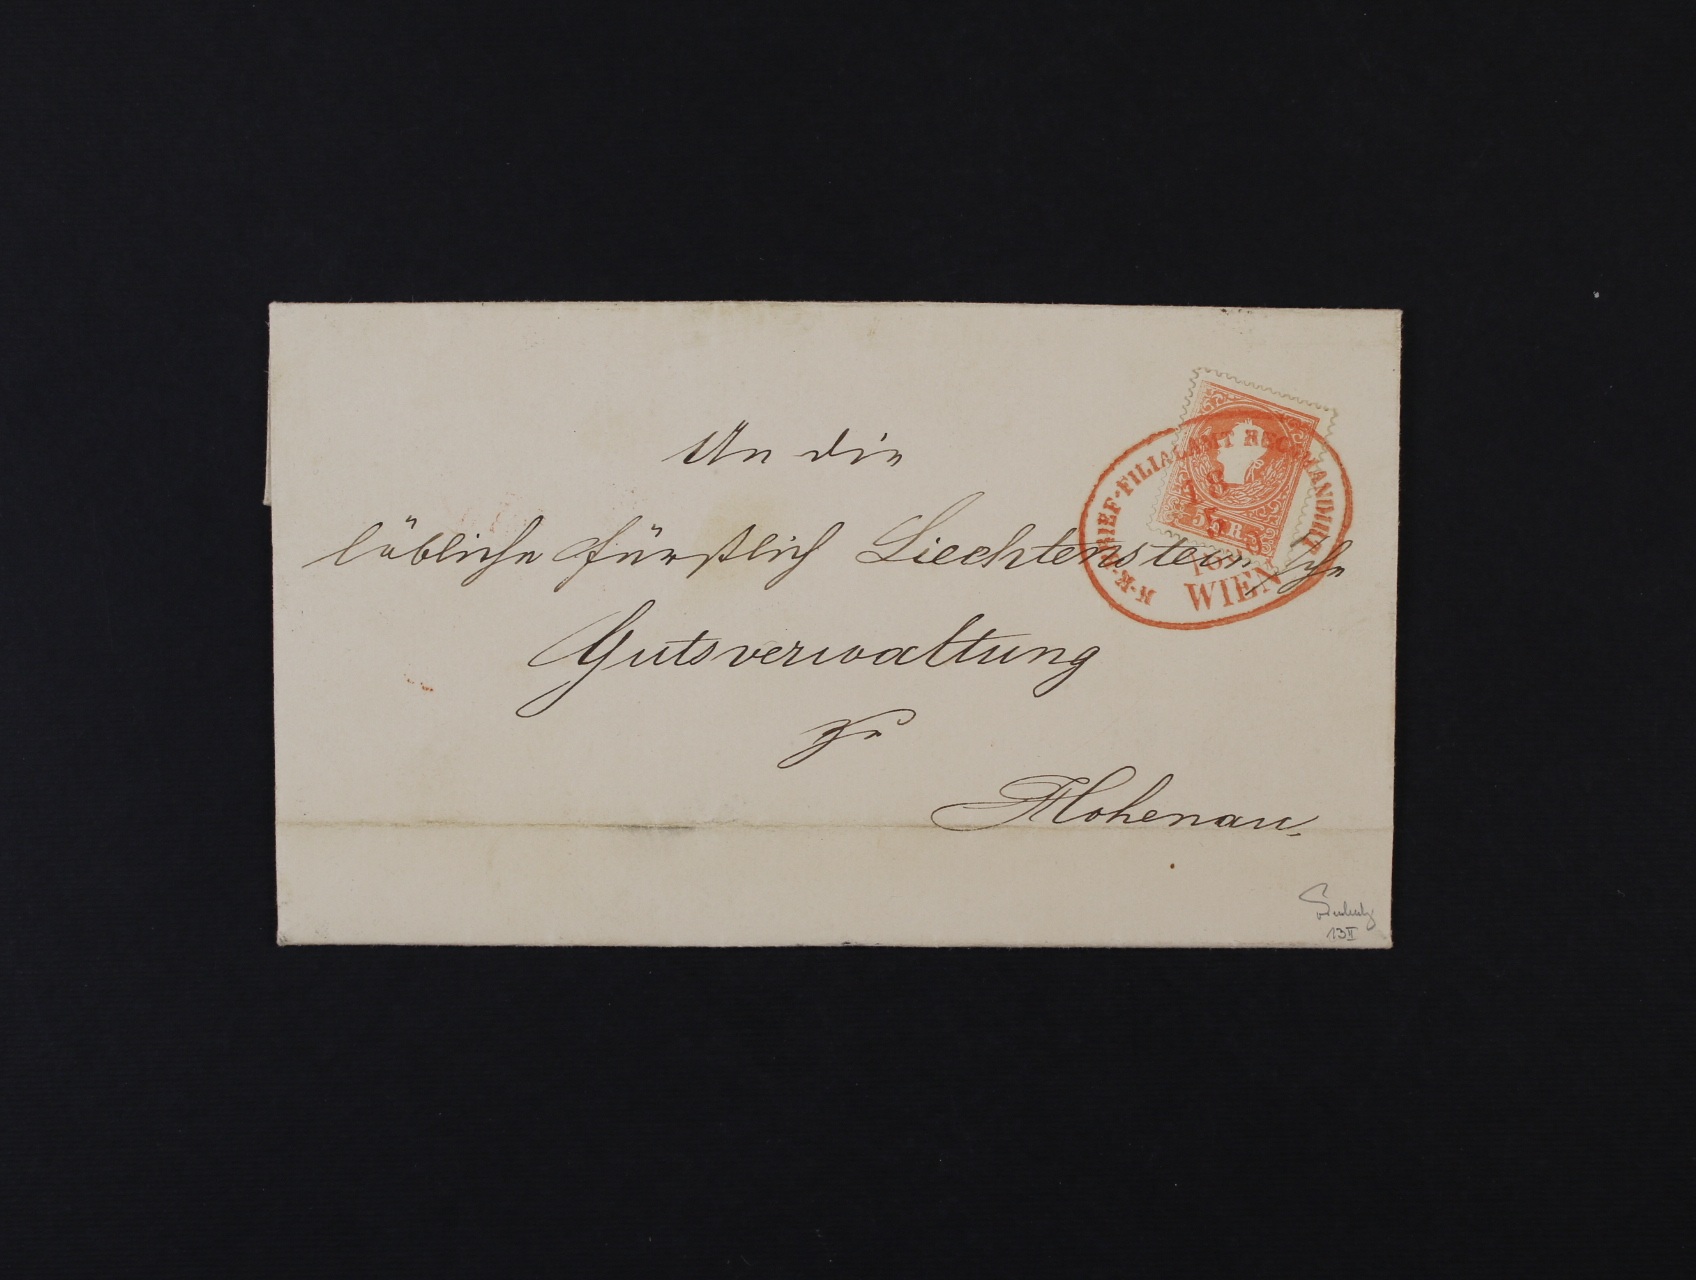 An die
löbliche fürstlich Liechtenstein'sche
Gutsverwaltung
zu
Hohenau
K.K. BRIEF-FILIALAMT BUCHHANDLER
WIEN
13 II